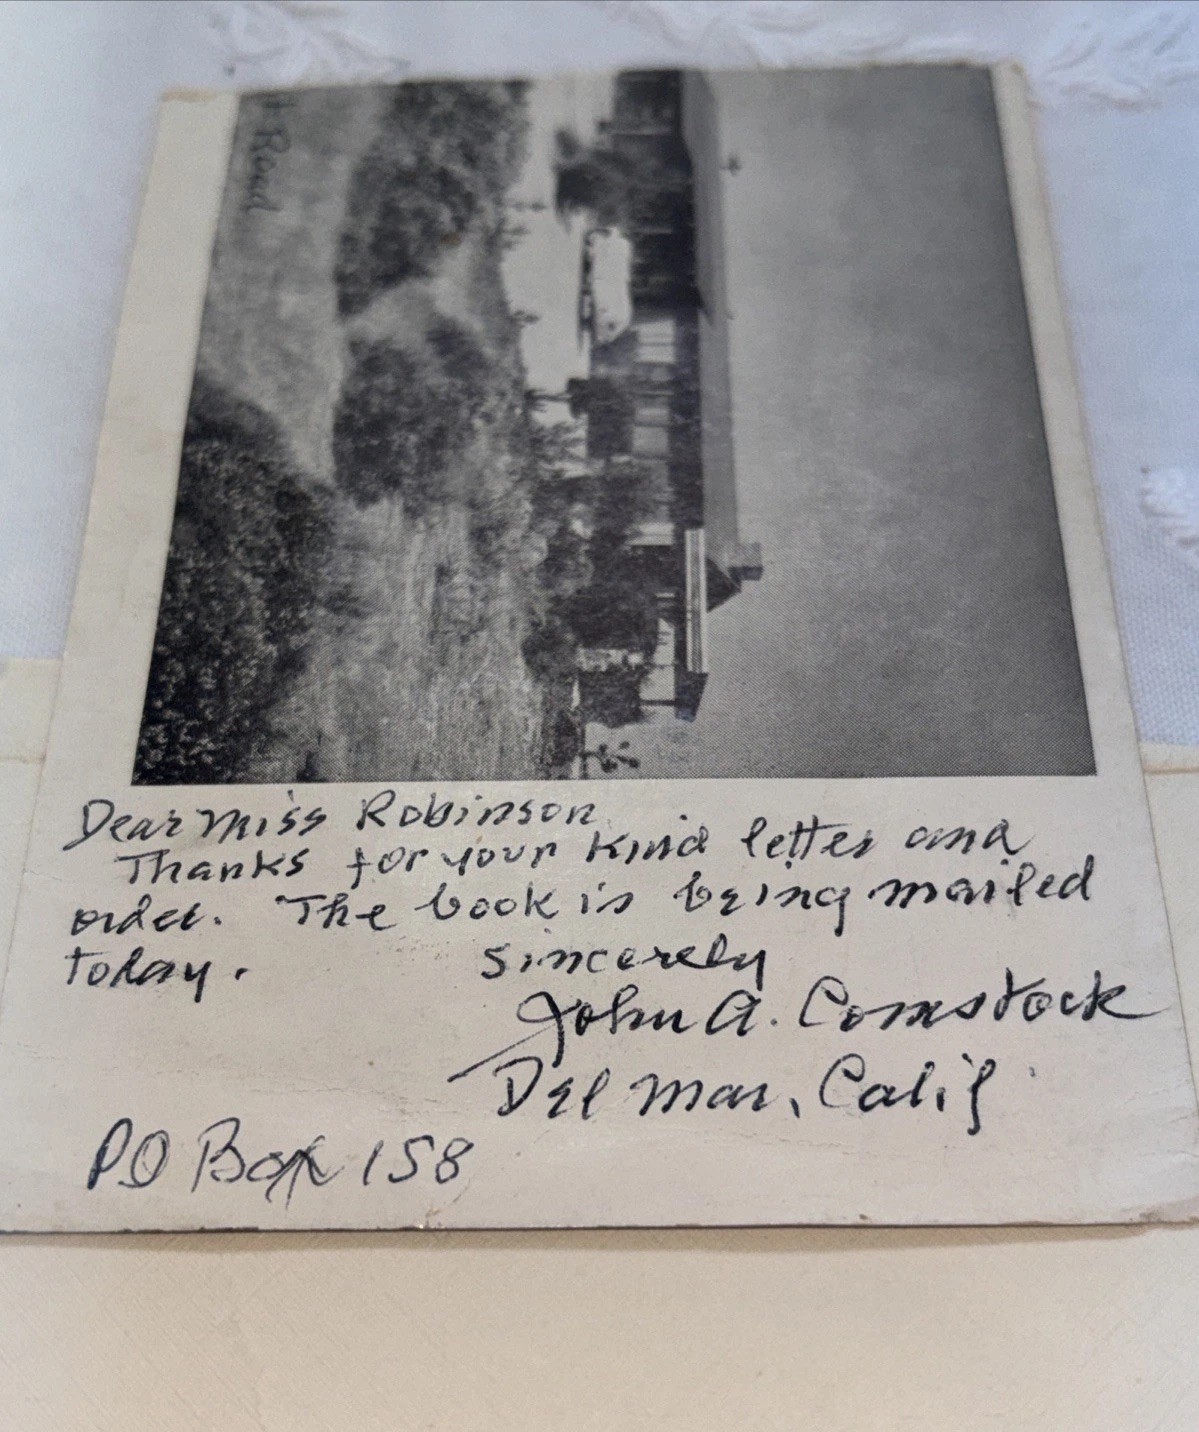 Road
Dear Miss Robinson
Thanks for your kind letter and
order. The book is being mailed
today.
Sincerely
John A. Comstock
Del Mar, Calif
PO Box 158